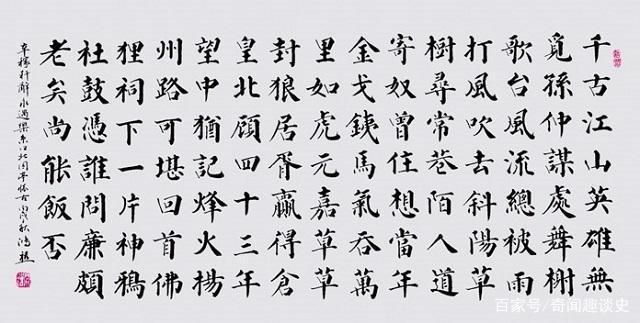 千古江山英雄無
覓孫仲謀處舞榭
歌台風流總被雨
打風吹去斜陽草
樹尋常巷陌人道
寄奴曾住想當年
金戈銕馬氣吞萬
里如虎元嘉草草
封狼居胥贏得倉
皇北顧四十三年
望中猶記烽火揚
州路可堪回首佛
狸祠下一片神鴉
社鼓憑誰問廉頗
老矣尚能飯否
辛稼軒辭永遇樂京口北固亭懷古
百家号/奇闻趣谈史